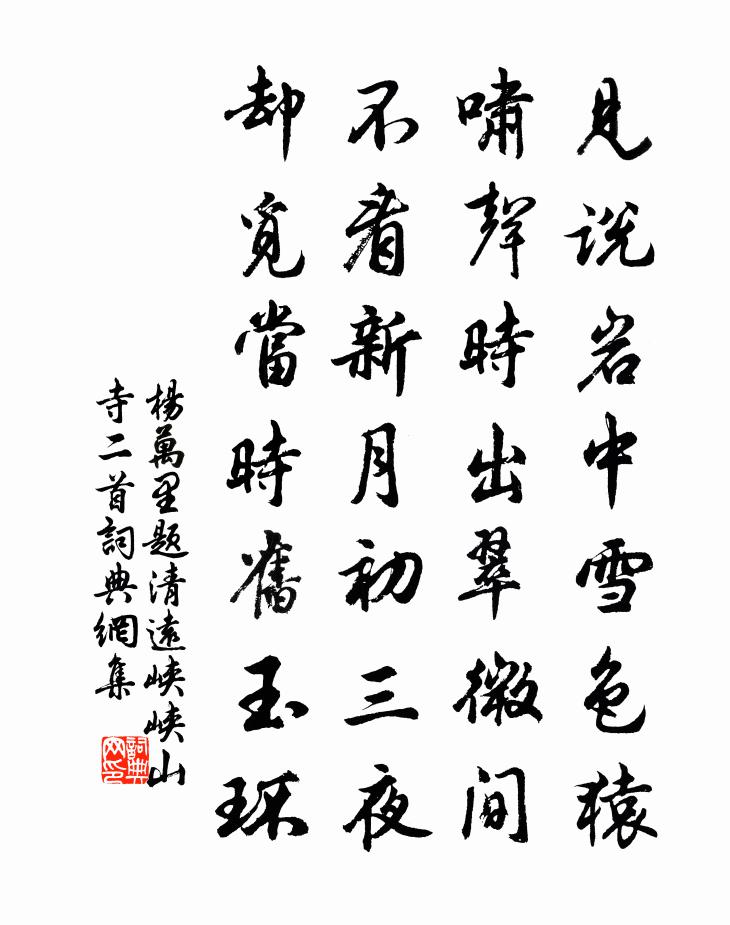 見説岩中雪色猿
嘯聲時出翠微間
不看新月初三夜
却覓當時舊玉環
楊萬里題清遠峽峽山
寺二首詞典網集
詞典網印